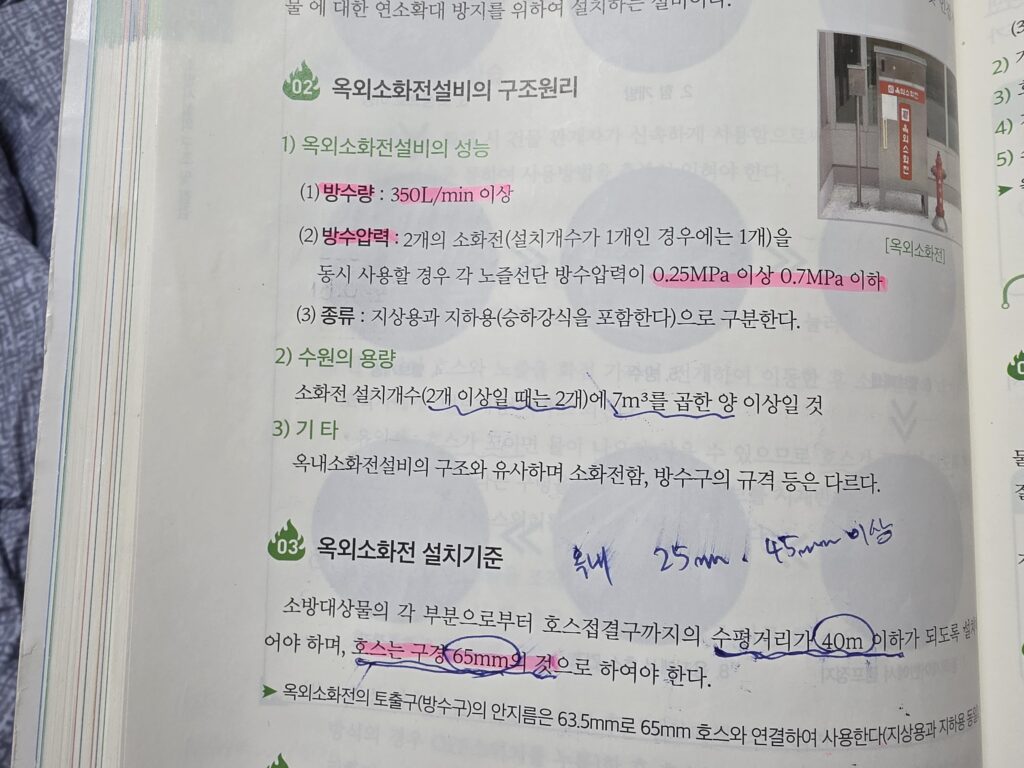 물에 대한 연소확대 방지를 위하여 설치하는 설비이다.
02 옥외소화전설비의 구조원리
1) 옥외소화전설비의 성능
(1) 방수량 : 350L/min 이상
(2) 방수압력 : 2개의 소화전(설치개수가 1개인 경우에는 1개)을
동시 사용할 경우 각 노즐선단 방수압력이 0.25MPa 이상 0.7MPa 이하
(3) 종류 : 지상용과 지하용(승하강식을 포함한다)으로 구분한다.
옥외소화전
옥외소화전
[옥외소화전]
2) 수원의 용량
소화전 설치개수(2개 이상일 때는 2개)에 7m³를 곱한 양 이상일 것
3) 기 타
옥내소화전설비의 구조와 유사하며 소화전함, 방수구의 규격 등은 다르다.
03 옥외소화전 설치기준
옥내 25mm . 45mm 이상
소방대상물의 각 부분으로부터 호스접결구까지의 수평거리가 40m 이하가 되도록 설치
어야 하며, 호스는 구경 65mm의 것으로 하여야 한다.
➤ 옥외소화전의 토출구(방수구)의 안지름은 63.5mm로 65mm 호스와 연결하여 사용한다(지상용과 지하용 동일
(3
2)
3)
4)
5)